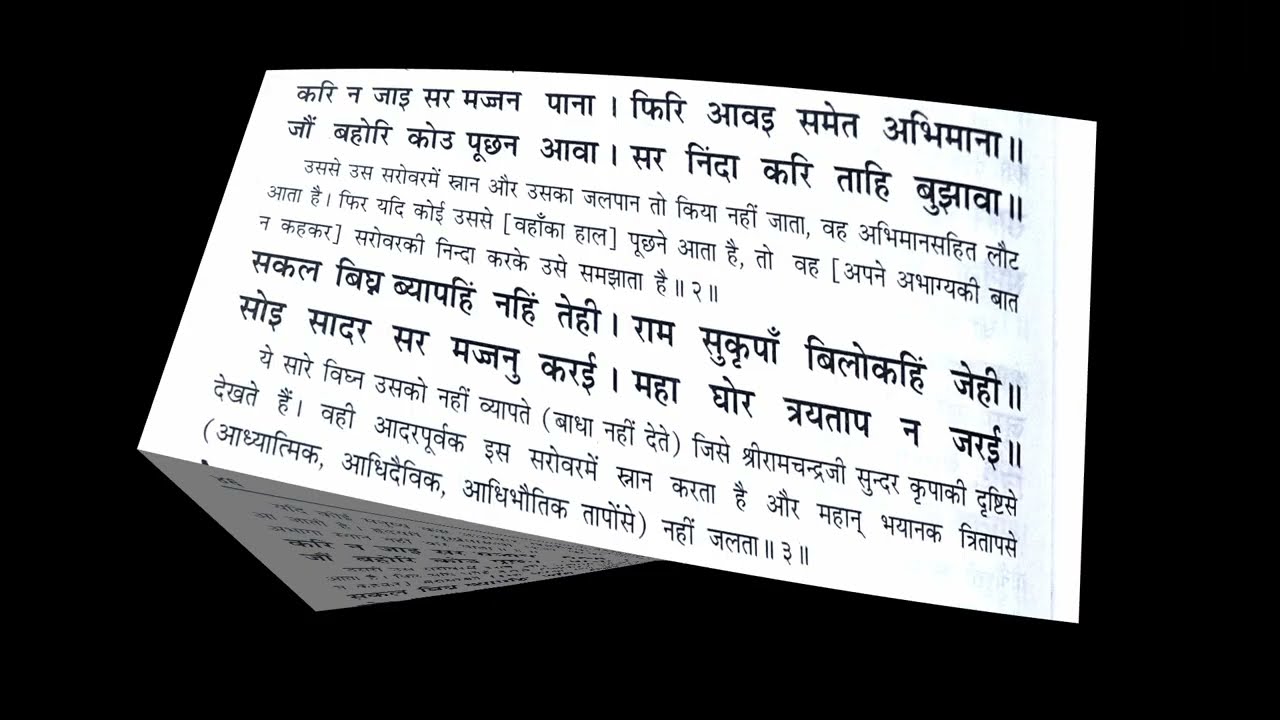 करि न जाइ सर मज्जन पाना । फिरि आवइ समेत अभिमाना॥
जौं बहोरि कोउ पूछन आवा । सर निंदा करि ताहि बुझावा॥
उससे उस सरोवरमें स्नान और उसका जलपान तो किया नहीं जाता, वह अभिमानसहित लौट
आता है। फिर यदि कोई उससे [वहाँका हाल] पूछने आता है, तो वह [अपने अभाग्यकी बात
न कहकर] सरोवरकी निन्दा करके उसे समझाता है॥२॥
सकल बिघ्न ब्यापहिं नहिं तेही। राम सुकृपाँ बिलोकहिं जेही॥
सोइ सादर सर मज्जनु करई। महा घोर त्रयताप न जरई॥
ये सारे विघ्न उसको नहीं व्यापते (बाधा नहीं देते) जिसे श्रीरामचन्द्रजी सुन्दर कृपाकी दृष्टिसे
देखते हैं। वही आदरपूर्वक इस सरोवरमें स्नान करता है और महान् भयानक त्रितापसे
(आध्यात्मिक, आधिदैविक, आधिभौतिक तापोंसे) नहीं जलता॥३॥
यदि कोई
करि न जाइ सर
जौं बहोरि कोउ
सकल बिघ्न